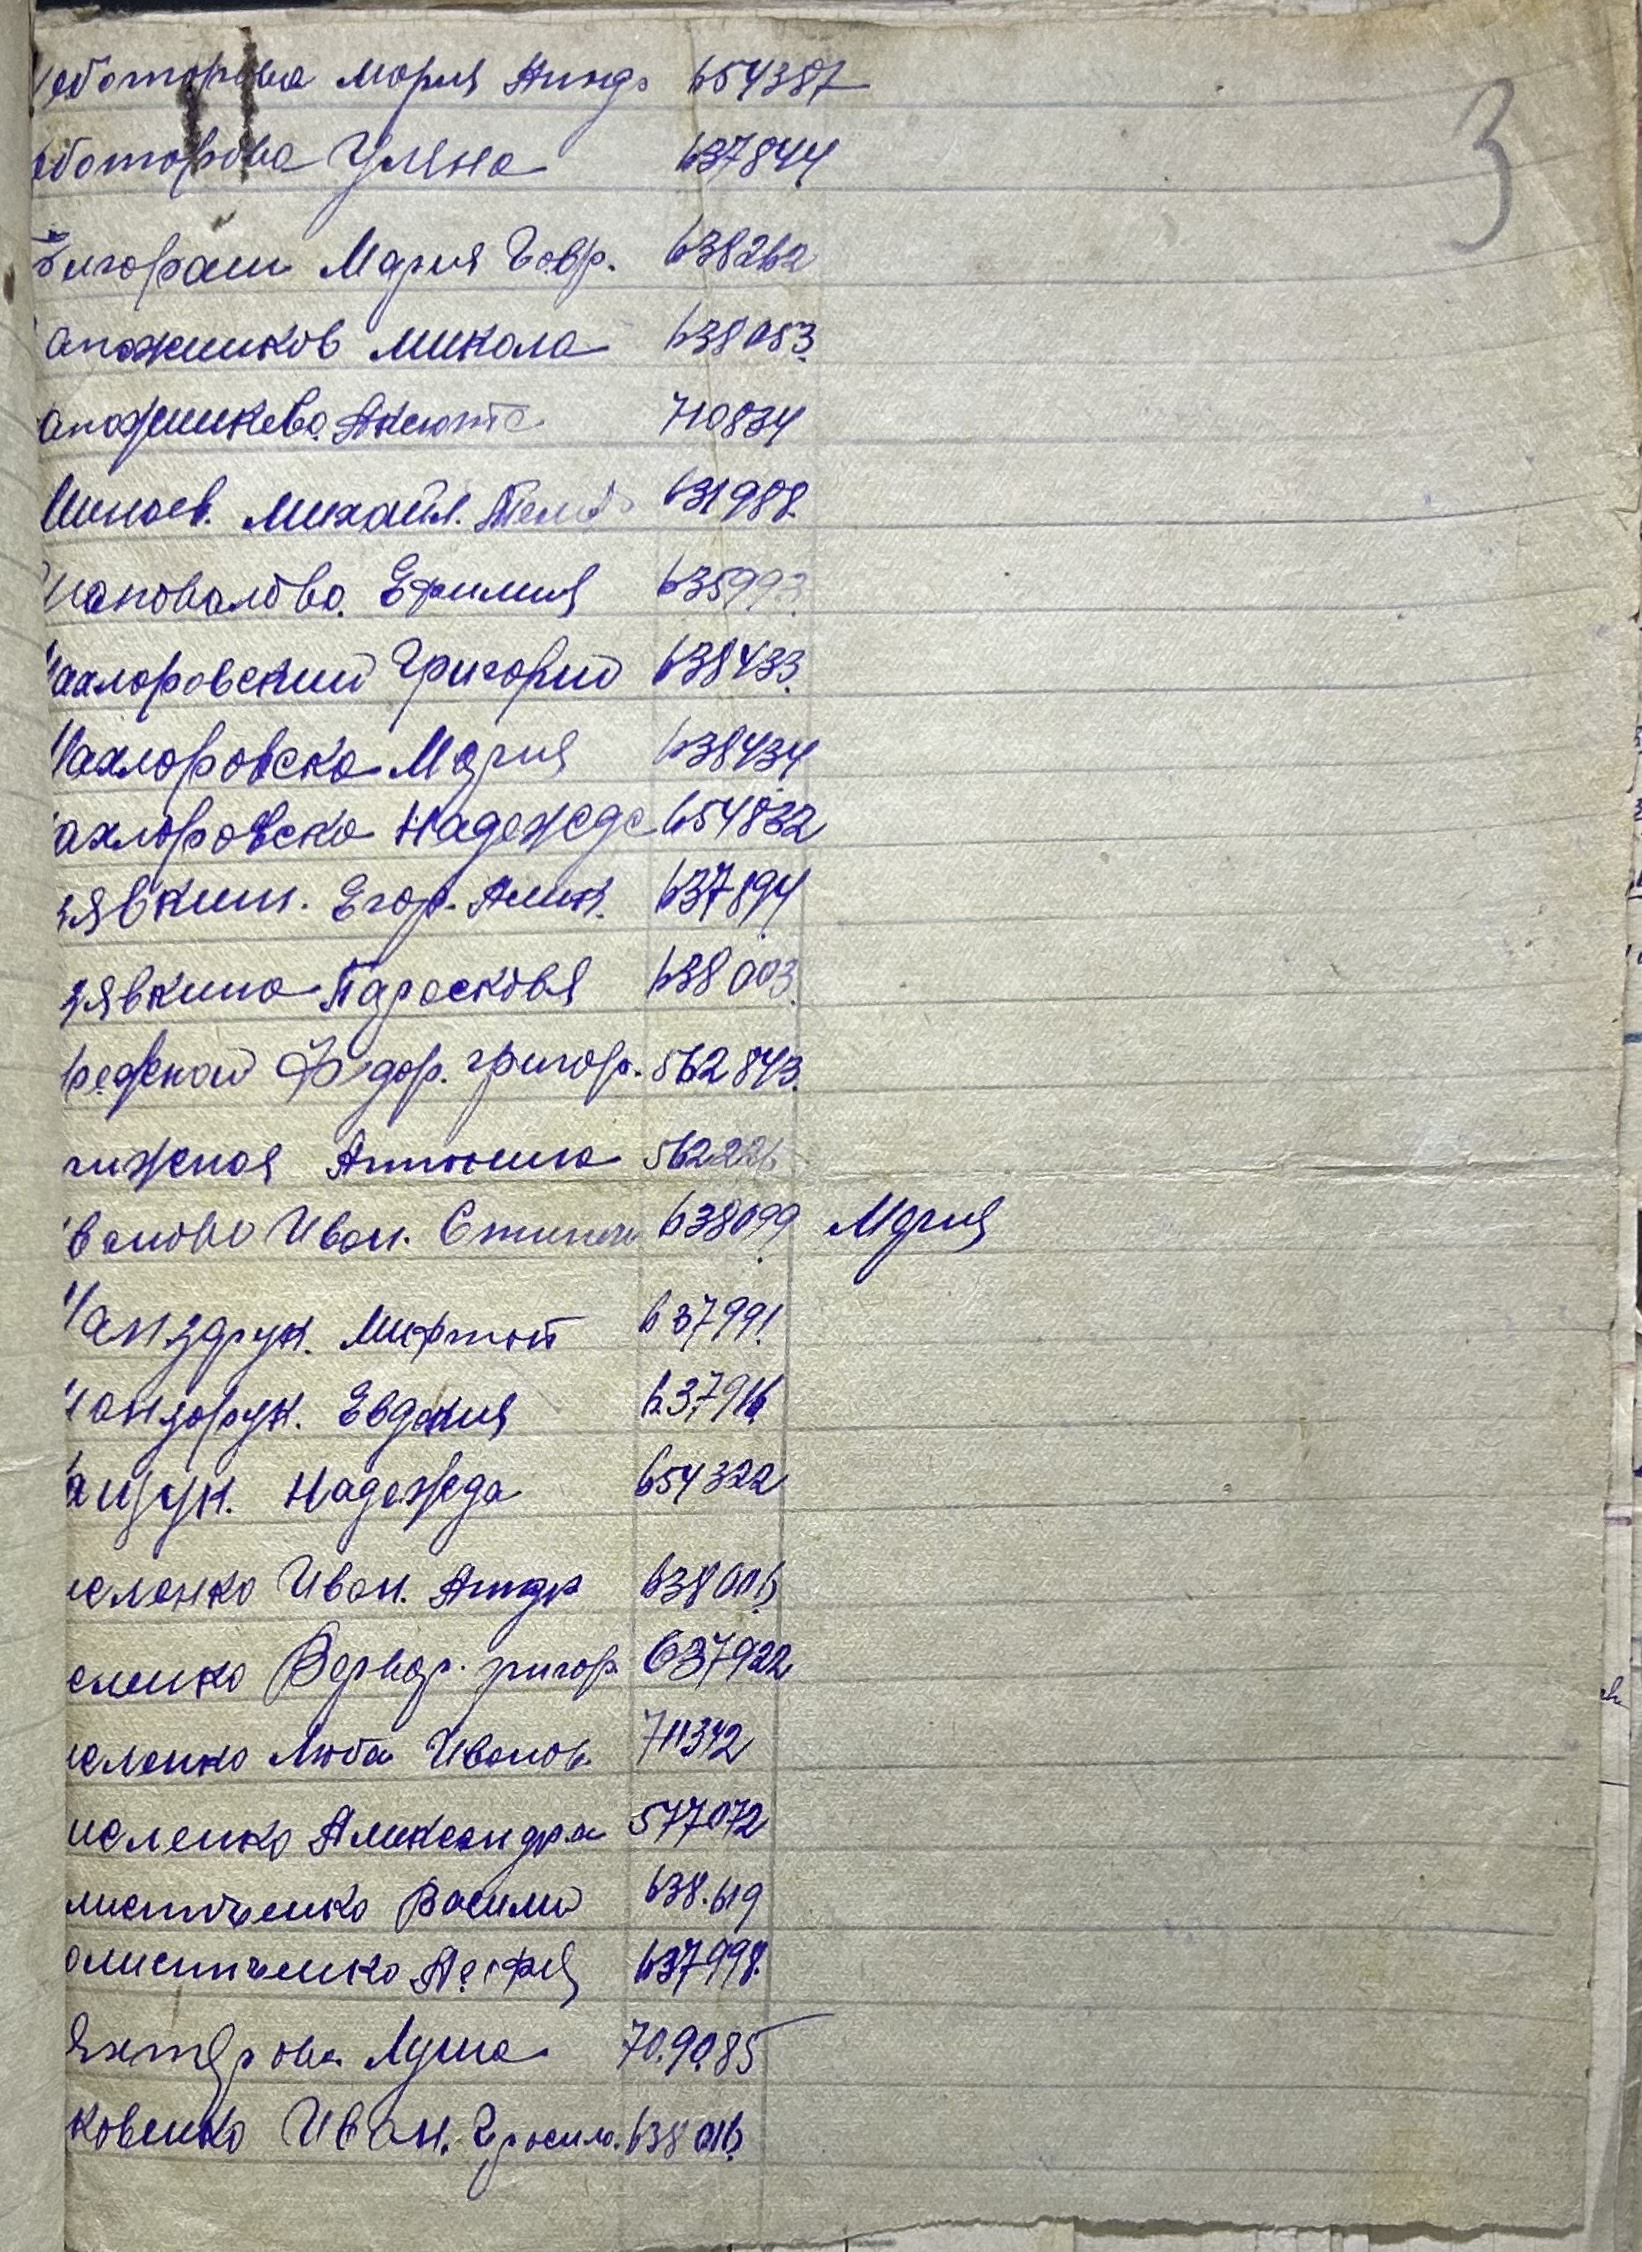 3
еботорова Мария Анид. 654387
оботорова Уляна 637844
Бигораш Мария Говр. 638262
апожников Микола 638053
апожникова Аксюта 710834
Минаев. Михайл. 631988
Шаповалова Ефимия 635993
Махлоровский Григорий 638433
Махлоровска Мария 638434
ахлоровска Надежда 654832
зявкин. Егор. Алик. 637894
зявкина Парасковя 638003
режной Федор. Григор. 562843
нижная Антонина 562226
ванова Иван. Степан 638099 Мария
Мандрук. Мифтот 637991
Мандрук. Евдокия 637916
ащук. Надежда 654322
исленко Иван. Андр 638006
сленко Варвар. Григор. 637922
исленко Люба Иванов. 711342
исленко Александра 577072
листченко Васили 638.619
олистченко Агафия 637998
Яхтерова Луша 70.90.85
ковенко Иван. Гросим. 638016